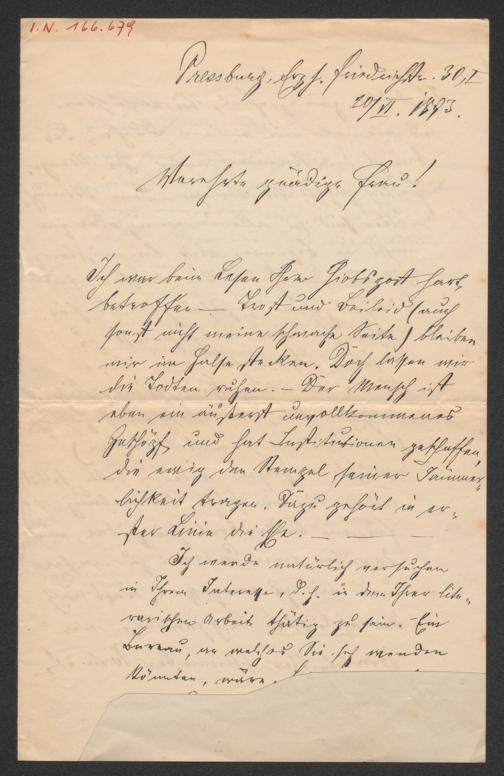 I.N. 166.679
Pressburg, Erzh. Friedrichstr. 30, I
20/VI. 1893.
Verehrte gnädige Frau!
Ich war beim Lesen Ihrer Hiobspost hart
betroffen — Trost und Beileid (auch
sonst nicht meine schwache Seite) bleiben
mir im Halse stecken. Doch lassen wir
die Todten ruhen. — Der Mensch ist
eben ein äußerst unvollkommenes
Geschöpf und hat Institutionen geschaffen,
die ewig den Stempel seiner Jämmer-
lichkeit tragen. Dazu gehört in er-
ster Linie die Ehe. — — —
Ich werde natürlich versuchen
in Ihrem Interesse, d. h. in dem Ihrer lite-
rarischen Arbeit thätig zu sein. Ein
Bureau, an welches Sie sich wenden
könnten, wäre